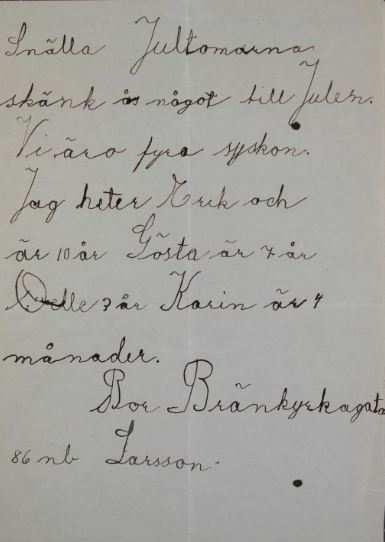 Snälla Jultomarna
skänk os något till Julen.
Vi äro fyra syskon.
Jag heter Erik och
är 10 år Gösta är 7 år
år Karin är 4
månader.
Bor Bränkyrkagatan
86 nb Larsson.